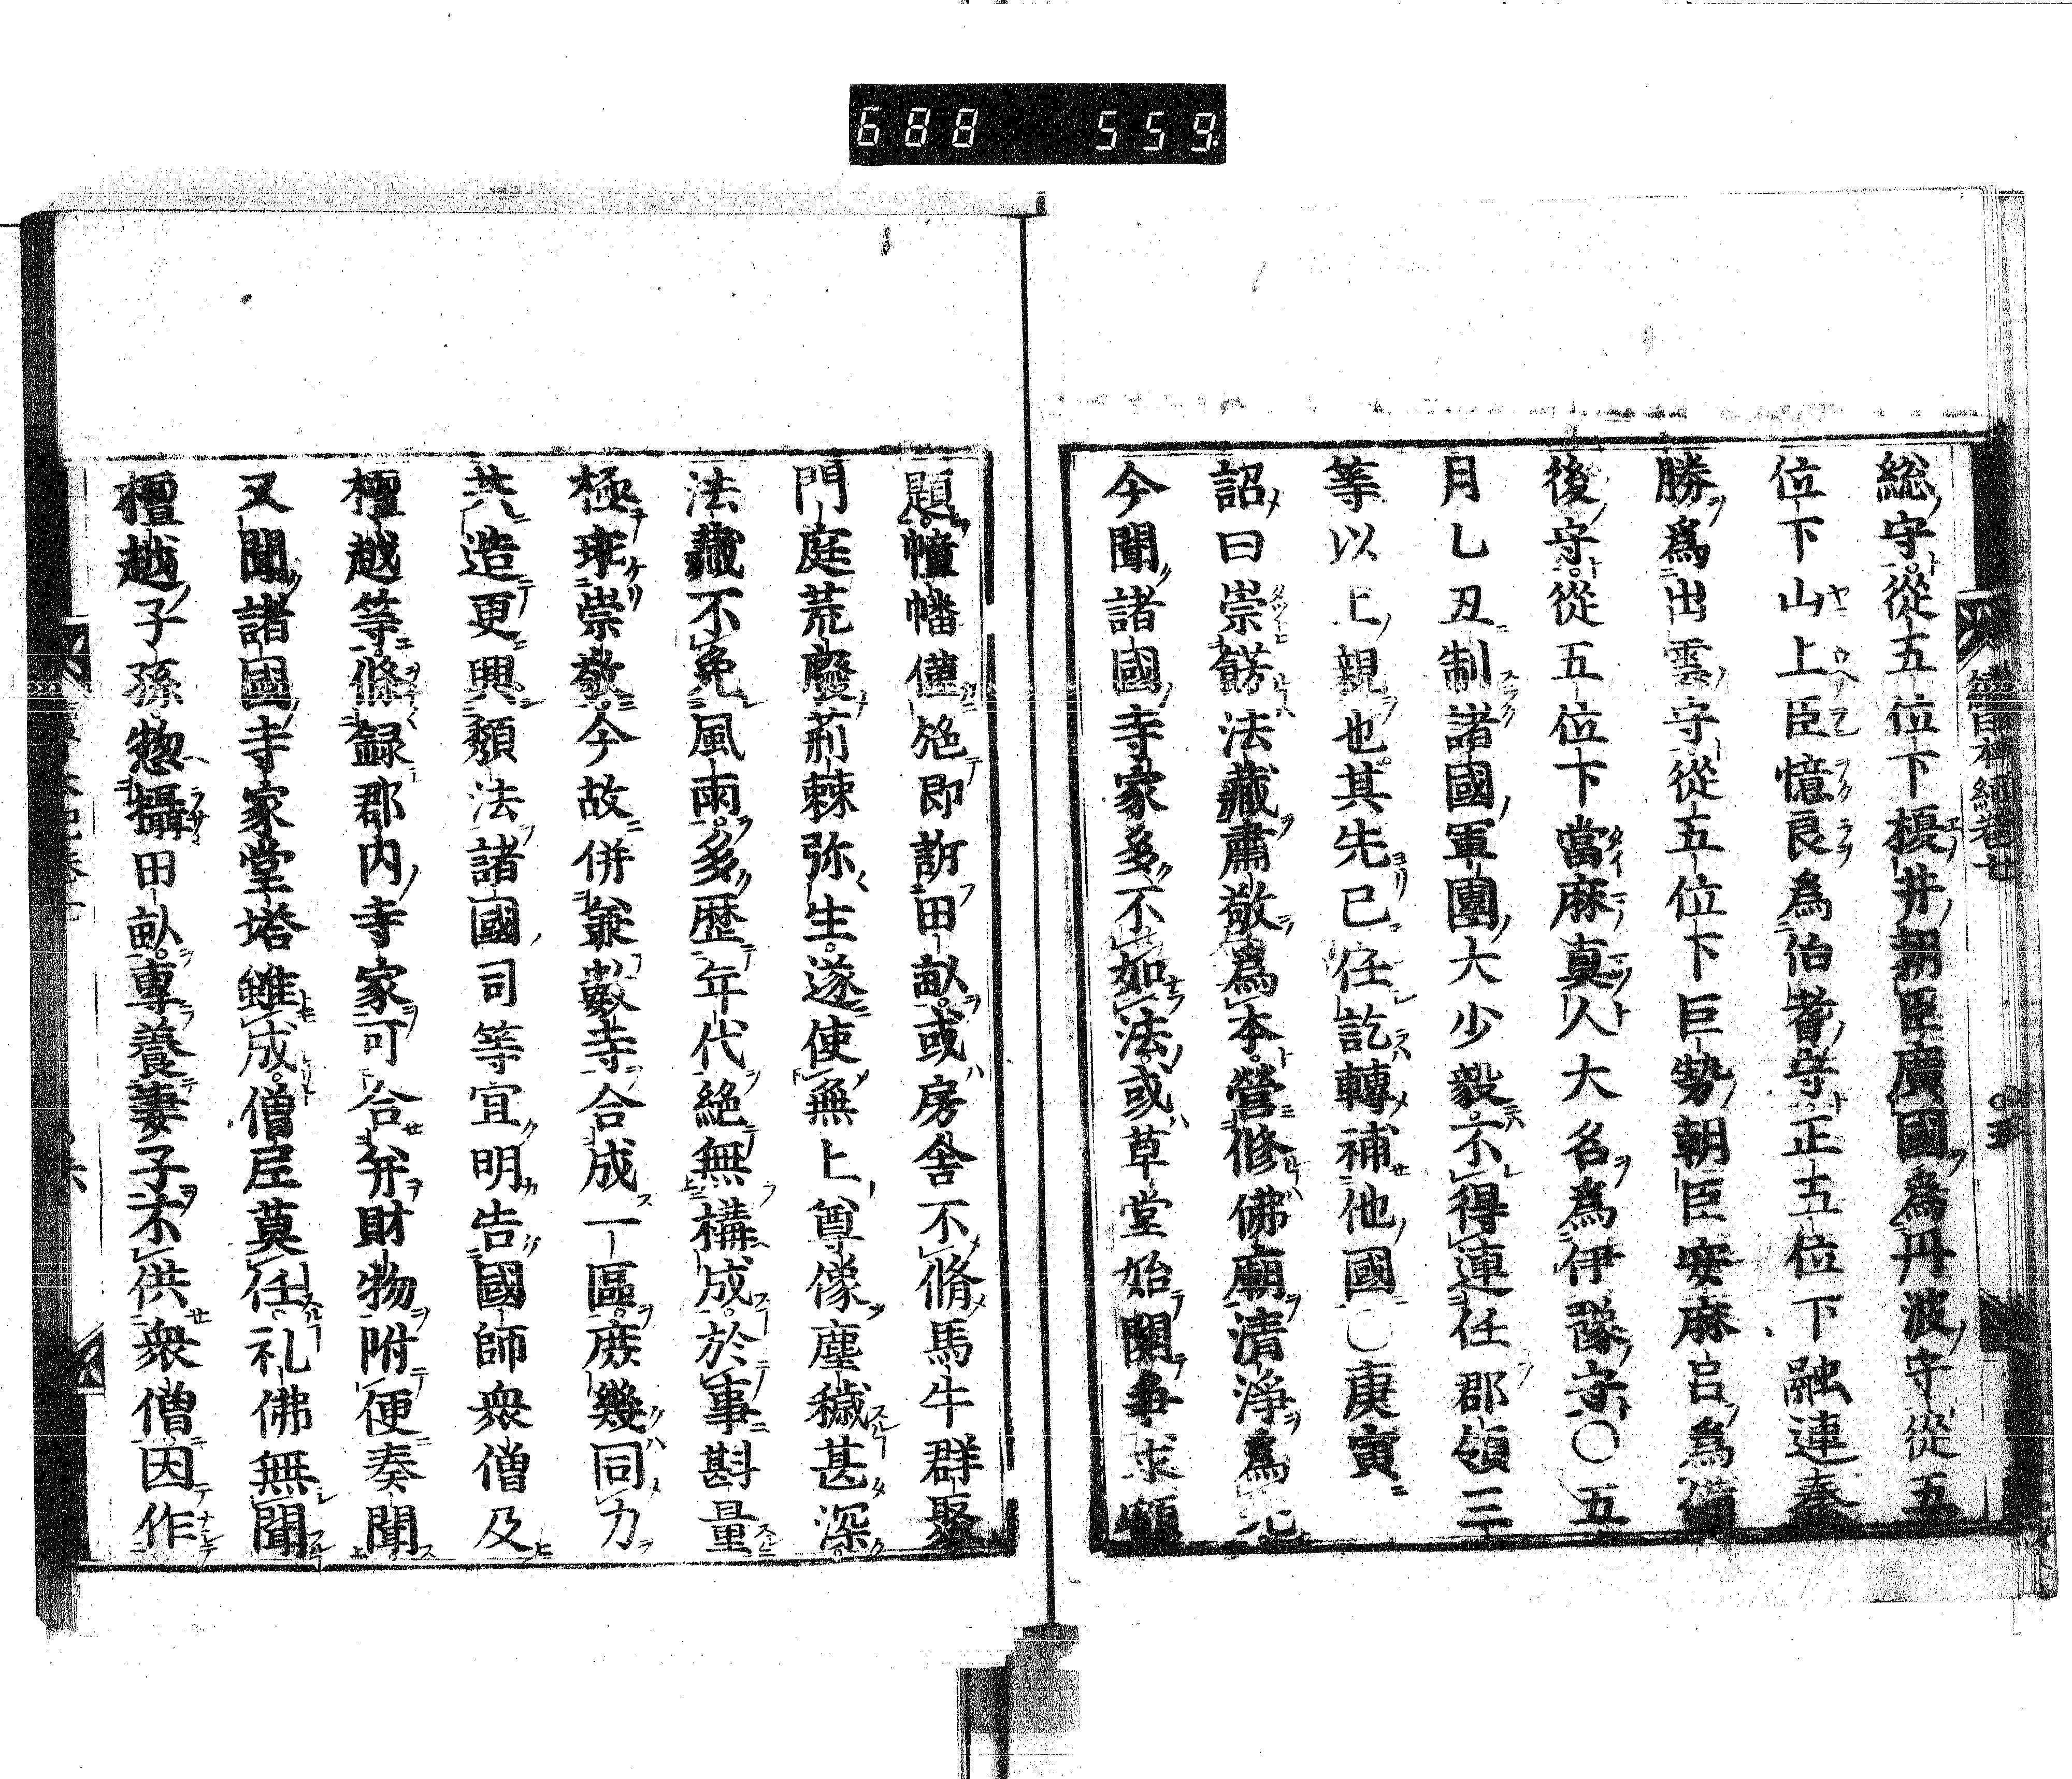 688 559
総守從五位下榎井朝臣廣國爲丹波守從五
位下山上臣憶良爲伯耆守正五位下融連秦
勝爲出雲守從五位下巨勢朝臣安麻呂爲備
後守從五位下當麻真人大名爲伊豫守〇五
月乚丑制諸國軍團大少毅不得連任郡領三
等以上親也其先已任訖轉補他國〇庚寅
詔曰崇餝法藏肅敬爲本營修佛廟清淨爲先
今聞諸國寺家多不如法或草堂始闢争求額
題幢幡僅施即訴田畝或房舎不脩馬牛群聚
門庭荒廢荊棘弥生遂使無上尊像塵穢甚深
法藏不免風雨多歴年代絶無構成於事斟量
極乖崇敬今故併兼數寺合成一區庶幾同力
共造更興頽法諸國司等宜明告國師衆僧及
檀越等條録郡内寺家可合并財物附便奏聞
又聞諸國寺家堂塔雖成僧尼莫任礼佛無聞
檀越子孫惣攝田畝專養妻子不供衆僧因作